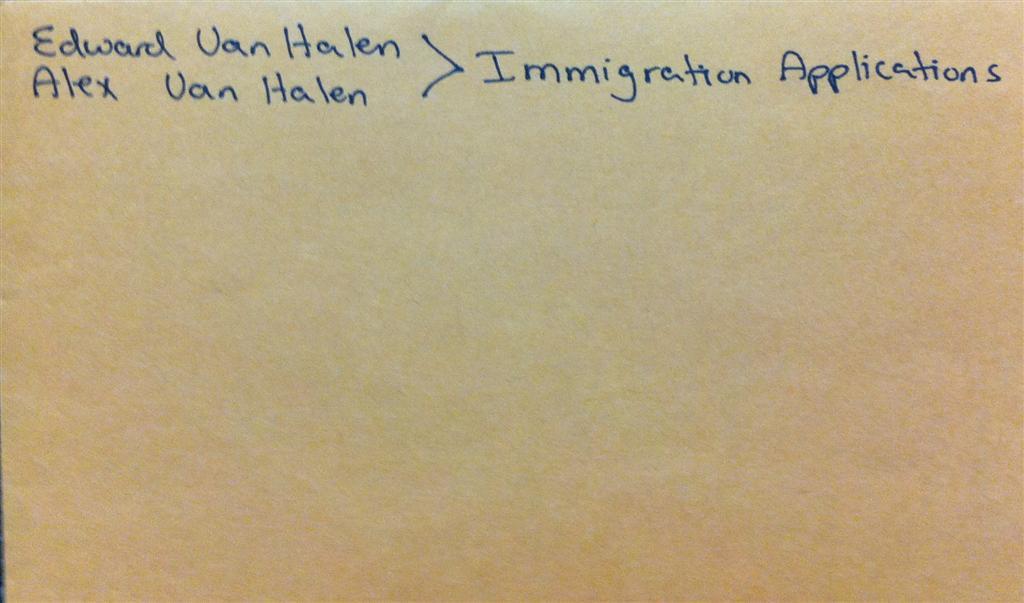 Edward Van Halen
Alex Van Halen > Immigration Applications